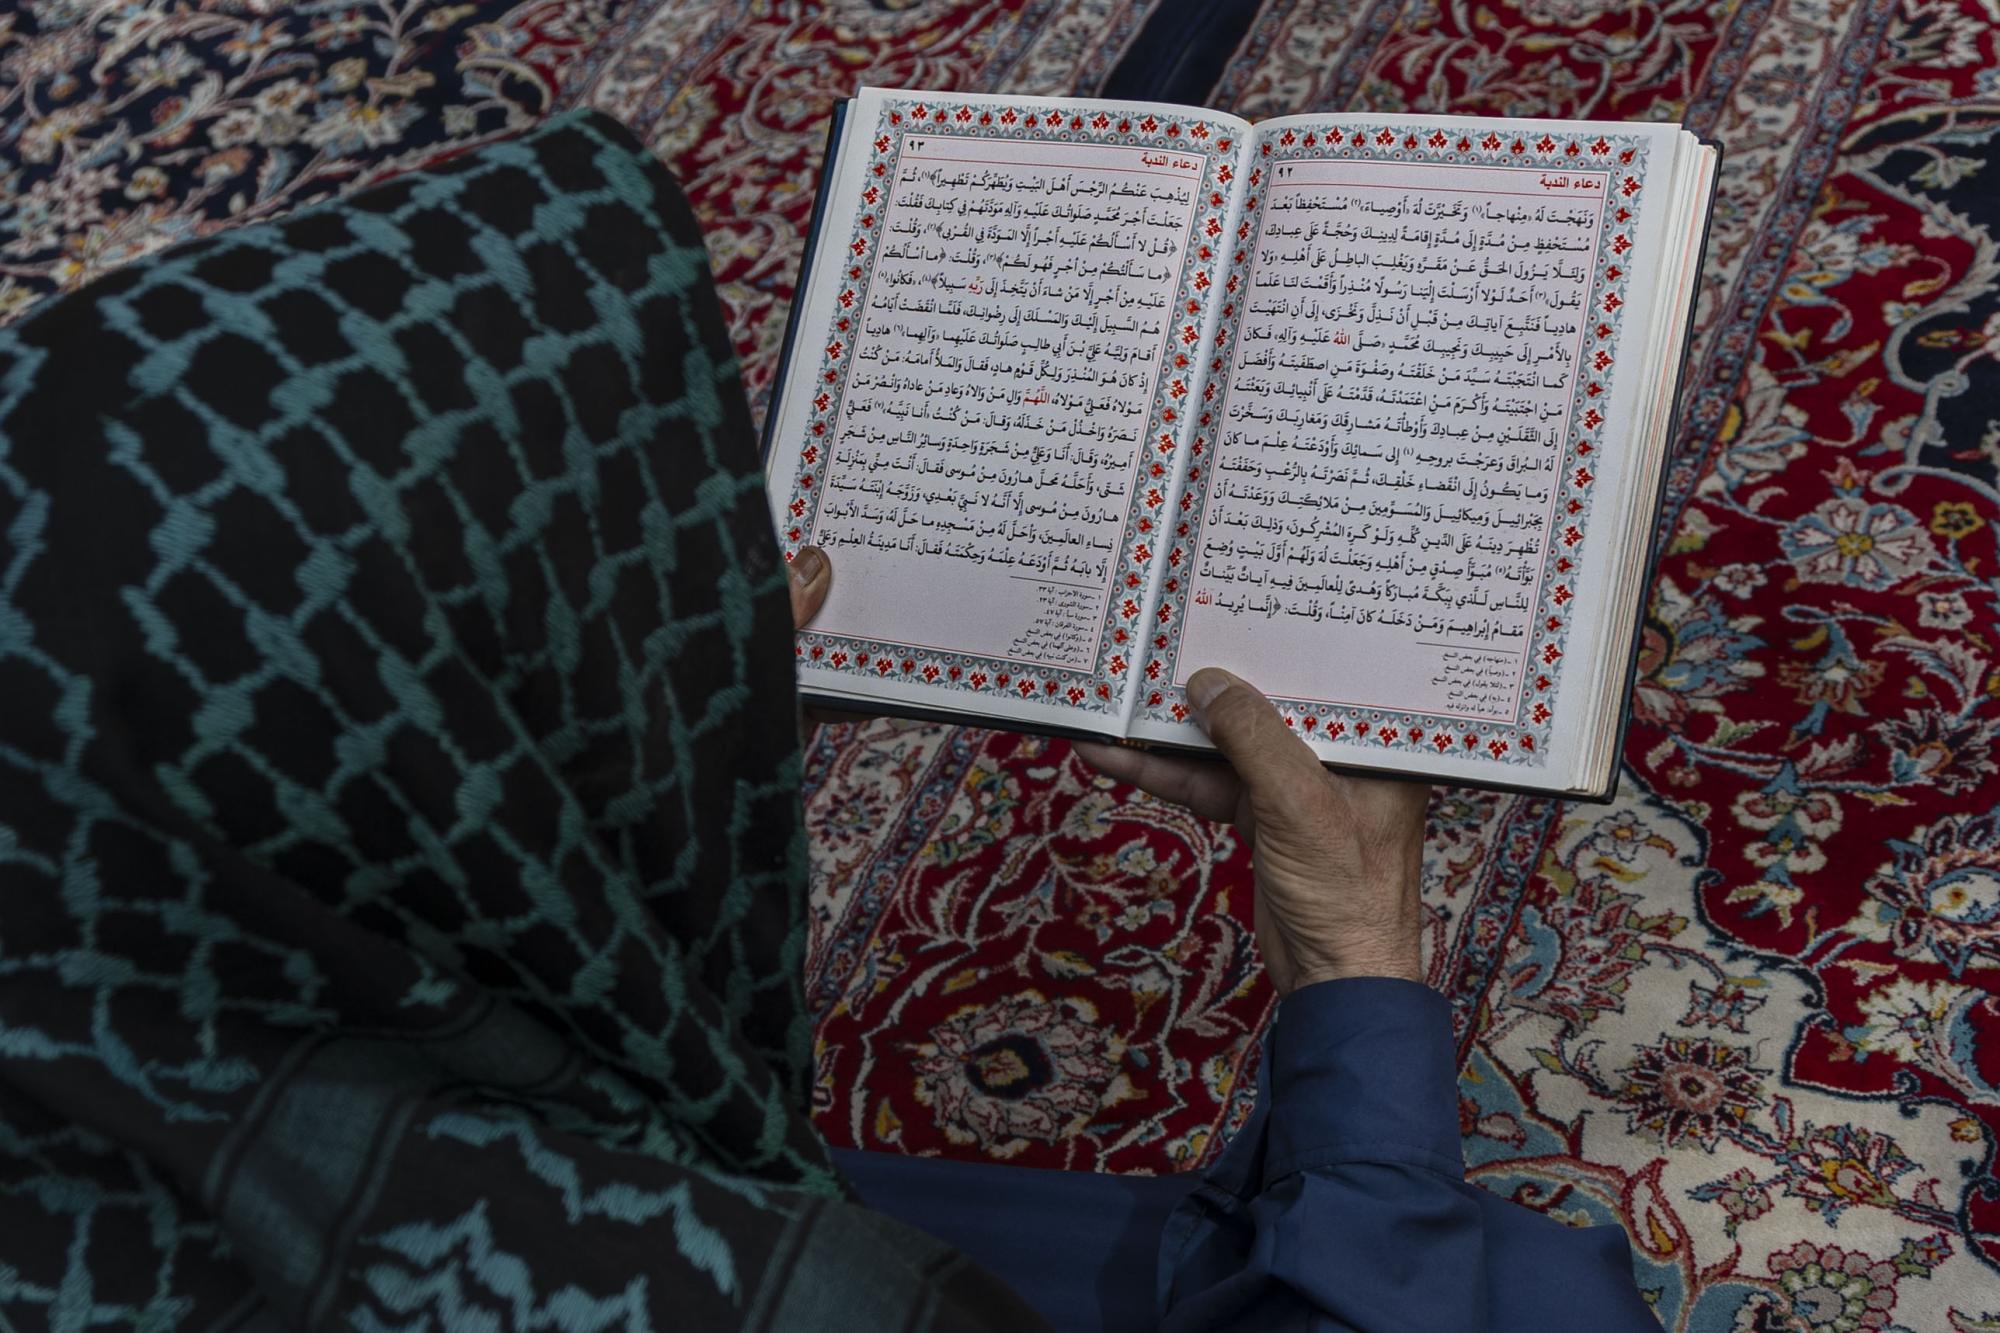 ٩٢
دعاء الندبة
وَنَهَجْتَ لَهُ «مِنْهاجاً»(١) وَتَخَيَّرْتَ لَهُ «أَوْصِياءَ»(٢) مُسْتَحْفِظاً بَعْدَ
مُسْتَحْفِظٍ مِنْ مُدَّةٍ إِلَى مُدَّةٍ إِقامَةً لِدِينِكَ وَحُجَّةً عَلَى عِبادِكَ،
وَلِئَلَّا يَزُولَ الحَقُّ عَنْ مَقَرِّهِ وَيَغْلِبَ الباطِلُ عَلَى أَهْلِهِ «وَلا
يَقُولَ»(٣) أَحَدٌ لَوْلا أَرْسَلْتَ إِلَيْنا رَسُولًا مُنْذِراً وَأَقَمْتَ لَنا عَلَماً
هادِياً فَنَتَّبِعَ آياتِكَ مِنْ قَبْلِ أَنْ نَذِلَّ وَنَخْزَى، إِلَى أَنِ انْتَهَيْتَ
بِالأَمْرِ إِلَى حَبِيبِكَ وَنَجِيبِكَ مُحَمَّدٍ «صَلَّى اللهُ عَلَيْهِ وَآلِهِ» فَكانَ
كَما انْتَجَبْتَهُ سَيِّدَ مَنْ خَلَقْتَهُ وَصَفْوَةَ مَنِ اصْطَفَيْتَهُ وَأَفْضَلَ
مَنِ اجْتَبَيْتَهُ وَأَكْرَمَ مَنِ اعْتَمَدْتَهُ، قَدَّمْتَهُ عَلَى أَنْبِيائِكَ وَبَعَثْتَهُ
إِلَى الثَّقَلَيْنِ مِنْ عِبادِكَ وَأَوْطَأْتَهُ مَشارِقَكَ وَمَغارِبَكَ وَسَخَّرْتَ
لَهُ البُراقَ وَعَرَجْتَ بروحِهِ (٤) إِلى سَمائِكَ وَأَوْدَعْتَهُ عِلْمَ ما كانَ
وَما يَكُونُ إِلَى انْقِضاءِ خَلْقِكَ، ثُمَّ نَصَرْتَهُ بِالرُّعْبِ وَحَفَفْتَهُ
بِجَبْرائِيلَ وَمِيكائِيلَ وَالمُسَوِّمِينَ مِنْ مَلائِكَتِكَ وَوَعَدْتَهُ أَنْ
تُظْهِرَ دِينَهُ عَلَى الدِّينِ كُلِّهِ وَلَوْ كَرِهَ المُشْرِكُونَ، وَذلِكَ بَعْدَ أَنْ
بَوَّأْتَهُ(٥) مُبَوَّأَ صِدْقٍ مِنْ أَهْلِهِ وَجَعَلْتَ لَهُ وَلَهُمْ أَوَّلَ بَيْتٍ وُضِعَ
لِلنَّاسِ لَلَّذي بِبَكَّةَ مُبارَكاً وَهُدىً لِلْعالَمِينَ فِيهِ آياتٌ بَيِّناتٌ
مَقامُ إِبْراهِيمَ وَمَنْ دَخَلَهُ كانَ آمِناً، وَقُلْتَ: ﴿إِنَّما يُرِيدُ اللهُ
١ ـ (منهاجه) في بعض النسخ.
٢ ـ (وصياً) في بعض النسخ.
٣ ـ (لئلا يقول) في بعض النسخ.
٤ ـ (به) في بعض النسخ.
٥ ـ بوأه: هيأ له وانزله فيه.
٩٣
دعاء الندبة
لِيُذْهِبَ عَنْكُمُ الرِّجْسَ أَهْلَ البَيْتِ وَيُطَهِّرَكُمْ تَطْهِيراً﴾(١)، ثُمَّ
جَعَلْتَ أَجْرَ مُحَمَّدٍ صَلَواتُكَ عَلَيْهِ وَآلِهِ مَوَدَّتَهُمْ فِي كِتابِكَ فَقُلْتَ:
﴿قُلْ لا أَسْأَلُكُمْ عَلَيْهِ أَجْراً إِلَّا المَوَدَّةَ فِي القُرْبى﴾(٢)، وَقُلْتَ:
﴿ما سَأَلْتُكُمْ مِنْ أَجْرٍ فَهُوَ لَكُمْ﴾(٣)، وَقُلْتَ: ﴿ما أَسْأَلُكُمْ
عَلَيْهِ مِنْ أَجْرٍ إِلَّا مَنْ شاءَ أَنْ يَتَّخِذَ إِلَى رَبِّهِ سَبِيلاً﴾(٤)، «فَكانُوا»(٥)
هُمُ السَّبِيلَ إِلَيْكَ وَالمَسْلَكَ إِلَى رِضْوانِكَ، فَلَمَّا انْقَضَتْ أَيَّامُهُ
أَقامَ وَلِيَّهُ عَلِيَّ بْنَ أَبِي طالِبٍ صَلَواتُكَ عَلَيْهِما «وَآلِهِما»(٦) هادِياً
إِذْ كانَ هُوَ المُنْذِرَ وَلِكُلِّ قَوْمٍ هادٍ، فَقالَ وَالمَلَأُ أَمامَهُ: مَنْ كُنْتُ
مَوْلاهُ فَعَلِيٌّ مَوْلاهُ، اللَّهُمَّ وَالِ مَنْ وَالاهُ وَعادِ مَنْ عاداهُ وَانْصُرْ مَنْ
نَصَرَهُ وَاخْذُلْ مَنْ خَذَلَهُ، وَقالَ: مَنْ كُنْتُ «أَنا نَبِيَّهُ»(٧) فَعَلِيٌّ
أَمِيرُهُ، وَقالَ: أَنا وَعَلِيٌّ مِنْ شَجَرَةٍ واحِدَةٍ وَسائِرُ النَّاسِ مِنْ شَجَرٍ
شَتَّى، وَأَحَلَّهُ مَحَلَّ هارُونَ مِنْ مُوسى فَقالَ: أَنْتَ مِنِّي بِمَنْزِلَةِ
هارُونَ مِنْ مُوسى إِلَّا أَنَّهُ لا نَبِيَّ بَعْدِي، وَزَوَّجَهُ إِبْنَتَهُ سَيِّدَةَ
نِساءِ العالَمِينَ، وَأَحَلَّ لَهُ مِنْ مَسْجِدِهِ ما حَلَّ لَهُ، وَسَدَّ الأَبْوابَ
إِلَّا بابَهُ ثُمَّ أَوْدَعَهُ عِلْمَهُ وَحِكْمَتَهُ فَقالَ: أَنَا مَدِينَةُ العِلْمِ وَعَلِيٌّ
١ ـ سورة الاحزاب: آية ٣٣.
٢ ـ سورة الشورى: آية ٢٣.
٣ ـ سورة سبأ: آية ٤٧.
٤ ـ سورة الفرقان: آية ٥٧.
٥ ـ (وكانوا) في بعض النسخ.
٦ ـ (وعلى آلهما) في بعض النسخ.
٧ ـ (من كنت نبيه) في بعض النسخ.